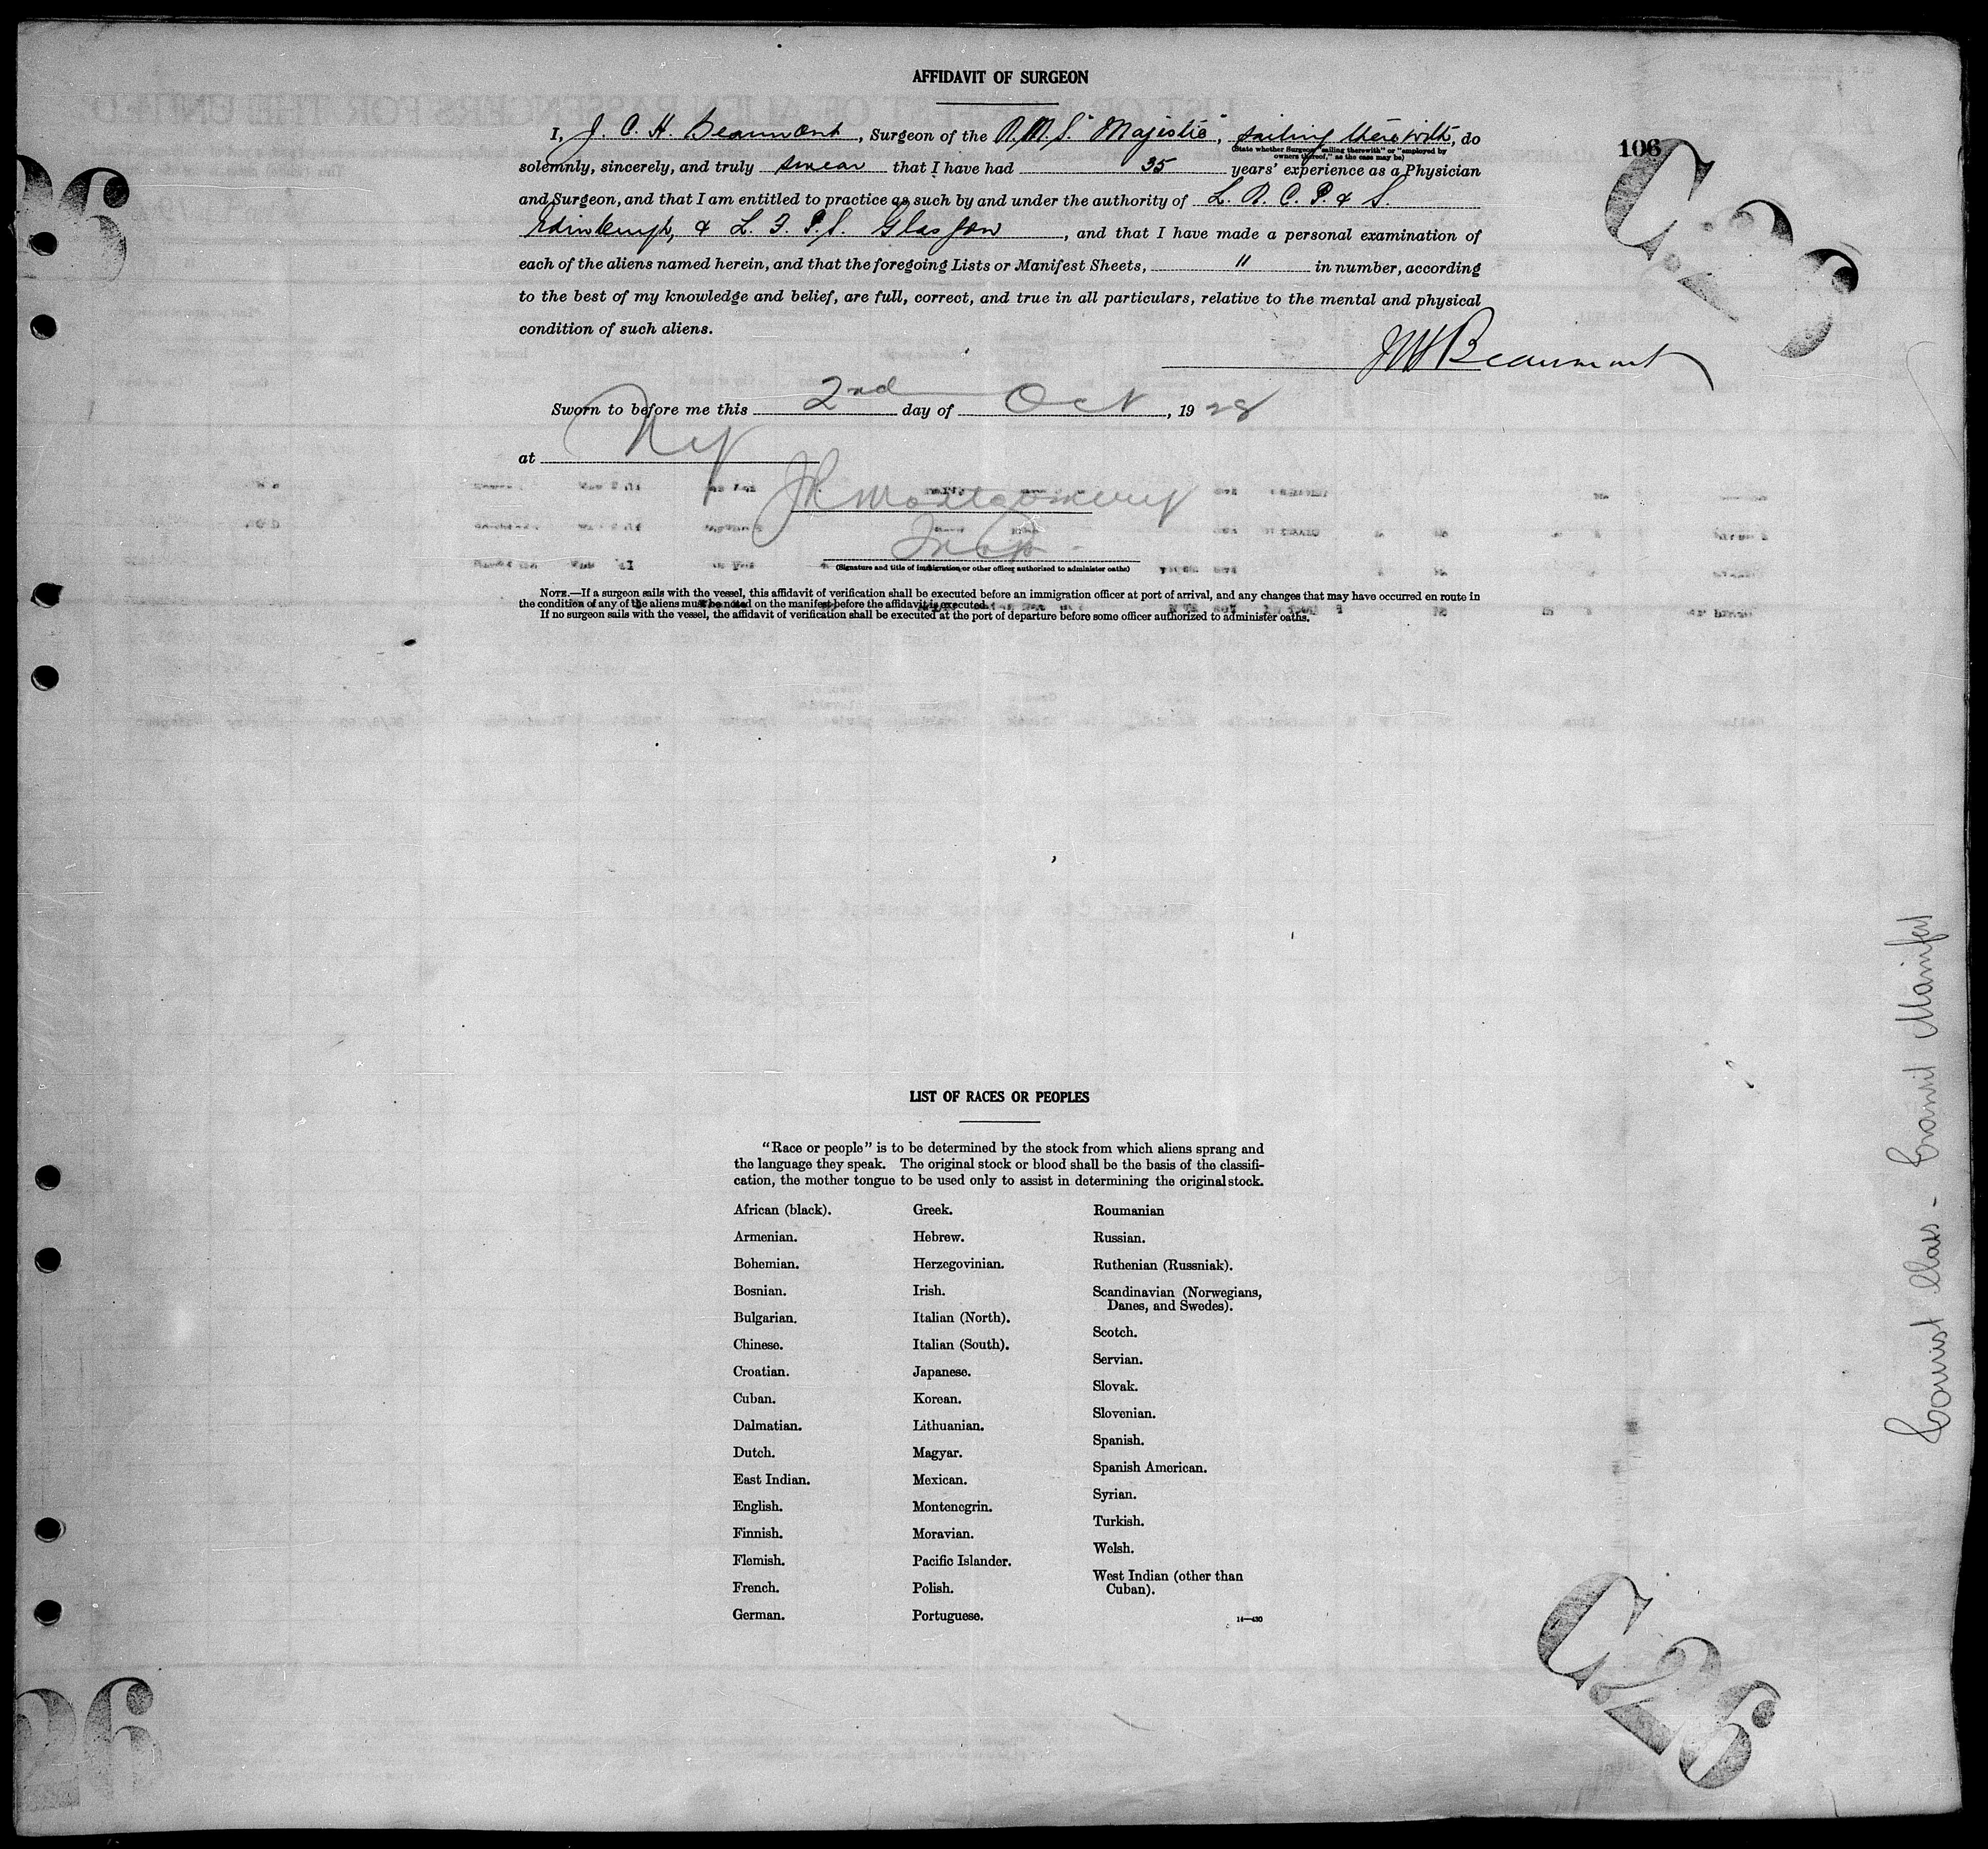 AFFIDAVIT OF SURGEON
106
I, J. C. H. Beaumont, Surgeon of the R.M.S. "Majestic", sailing therewith, do
(State whether Surgeon "sailing therewith" or "employed by
owners thereof," as the case may be)
solemnly, sincerely, and truly swear that I have had 35 years' experience as a Physician
and Surgeon, and that I am entitled to practice as such by and under the authority of L. R. C. P. & S.
Edinburgh, & L. F. P. S. Glasgow, and that I have made a personal examination of
each of the aliens named herein, and that the foregoing Lists or Manifest Sheets, 11 in number, according
to the best of my knowledge and belief, are full, correct, and true in all particulars, relative to the mental and physical
condition of such aliens.
JCHBeaumont
Sworn to before me this 2nd day of Oct, 1928
at NY
JR Montgomery
Insp
(Signature and title of immigration or other officer authorized to administer oaths)
NOTE.—If a surgeon sails with the vessel, this affidavit of verification shall be executed before an immigration officer at port of arrival, and any changes that may have occurred en route in
the condition of any of the aliens must be noted on the manifest before the affidavit is executed.
If no surgeon sails with the vessel, the affidavit of verification shall be executed at the port of departure before some officer authorized to administer oaths.
LIST OF RACES OR PEOPLES
"Race or people" is to be determined by the stock from which aliens sprang and
the language they speak. The original stock or blood shall be the basis of the classifi-
cation, the mother tongue to be used only to assist in determining the original stock.
African (black).
Armenian.
Bohemian.
Bosnian.
Bulgarian.
Chinese.
Croatian.
Cuban.
Dalmatian.
Dutch.
East Indian.
English.
Finnish.
Flemish.
French.
German.
Greek.
Hebrew.
Herzegovinian.
Irish.
Italian (North).
Italian (South).
Japanese.
Korean.
Lithuanian.
Magyar.
Mexican.
Montenegrin.
Moravian.
Pacific Islander.
Polish.
Portuguese.
Roumanian
Russian.
Ruthenian (Russniak).
Scandinavian (Norwegians,
Danes, and Swedes).
Scotch.
Servian.
Slovak.
Slovenian.
Spanish.
Spanish American.
Syrian.
Turkish.
Welsh.
West Indian (other than
Cuban).
14—430
C.26
C.26
26
26
Tourist Class -